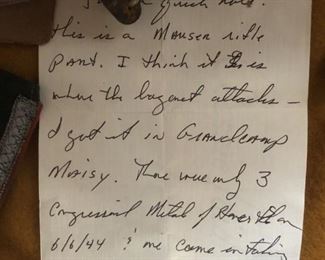 Just a quick note.
this is a MAUSER rifle
PART. I think it is
where the bayonet attaches -
I got it in GRANDCAMP
MAISY. There were only 3
Congressional Metal of Honor
6/6/44 & one came in taking